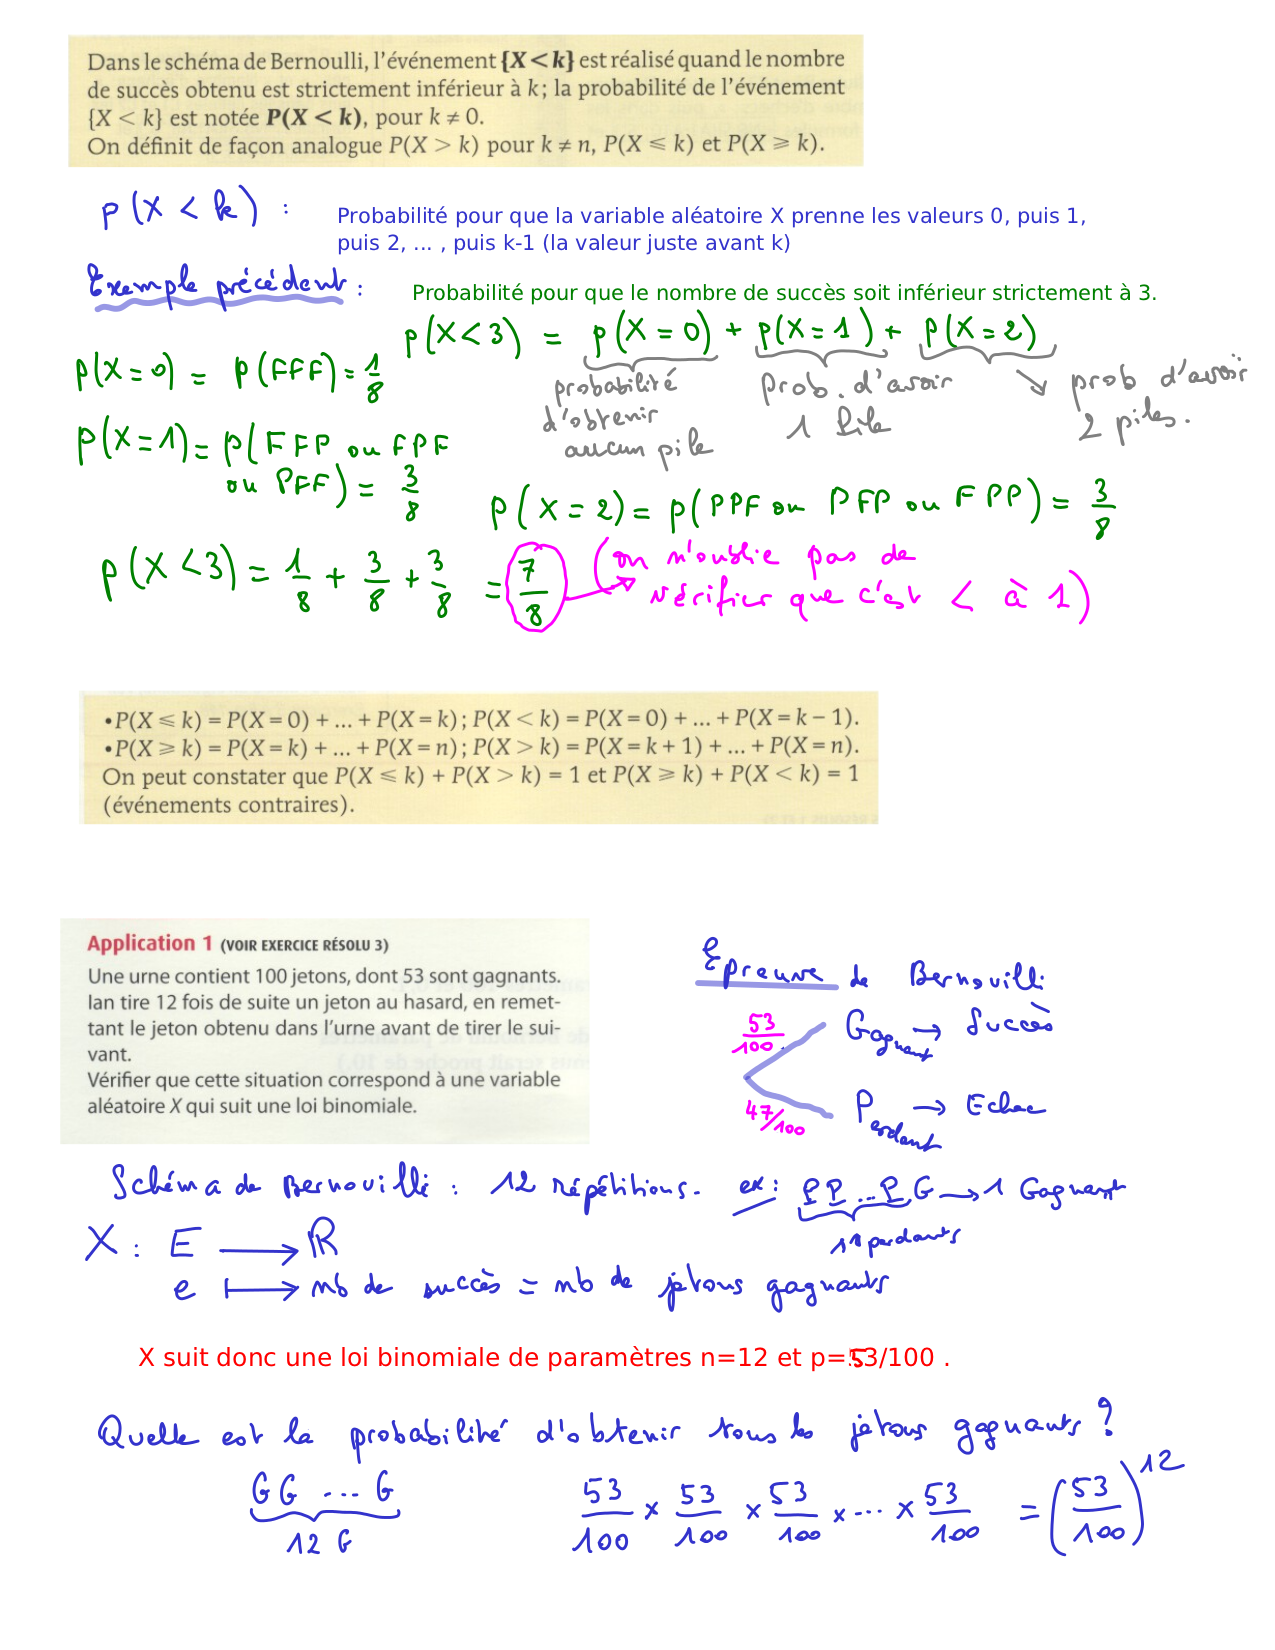 Dans le schéma de Bernoulli, l'événement {X < k} est réalisé quand le nombre
de succès obtenu est strictement inférieur à k ; la probabilité de l'événement
{X < k} est notée P(X < k), pour k ≠ 0.
On définit de façon analogue P(X > k) pour k ≠ n, P(X ⩽ k) et P(X ⩾ k).
p(X < k) :
Probabilité pour que la variable aléatoire X prenne les valeurs 0, puis 1,
puis 2, ... , puis k-1 (la valeur juste avant k)
Exemple précédent :
Probabilité pour que le nombre de succès soit inférieur strictement à 3.
p(X<3) = p(X=0) + p(X=1) + p(X=2)
probabilité d'obtenir aucun pile
prob. d'avoir 1 Pile
prob d'avoir 2 piles.
p(X=0) = p(FFF) = 1/8
p(X=1) = p(FFP ou FPF
ou PFF) = 3/8
p(X=2) = p(PPF ou PFP ou FPP) = 3/8
p(X<3) = 1/8 + 3/8 + 3/8 = 7/8
(on n'oublie pas de
vérifier que c'est < à 1)
• P(X ⩽ k) = P(X = 0) + ... + P(X = k) ; P(X < k) = P(X = 0) + ... + P(X = k – 1).
• P(X ⩾ k) = P(X = k) + ... + P(X = n) ; P(X > k) = P(X = k + 1) + ... + P(X = n).
On peut constater que P(X ⩽ k) + P(X > k) = 1 et P(X ⩾ k) + P(X < k) = 1
(événements contraires).
Application 1 (VOIR EXERCICE RÉSOLU 3)
Une urne contient 100 jetons, dont 53 sont gagnants.
Ian tire 12 fois de suite un jeton au hasard, en remet-
tant le jeton obtenu dans l'urne avant de tirer le sui-
vant.
Vérifier que cette situation correspond à une variable
aléatoire X qui suit une loi binomiale.
Epreuve de Bernouilli
53/100 Gagnant → Succès
47/100 Perdant → Echec
Schéma de Bernouilli : 12 répétitions. ex : PP...P G → 1 Gagnant
11 perdants
X : E → ℝ
e ↦ nb de succès = nb de jetons gagnants
X suit donc une loi binomiale de paramètres n=12 et p=53/100 .
Quelle est la probabilité d'obtenir tous les jetons gagnants ?
GG ... G
12 G
53/100 × 53/100 × 53/100 × ... × 53/100 = (53/100)^12